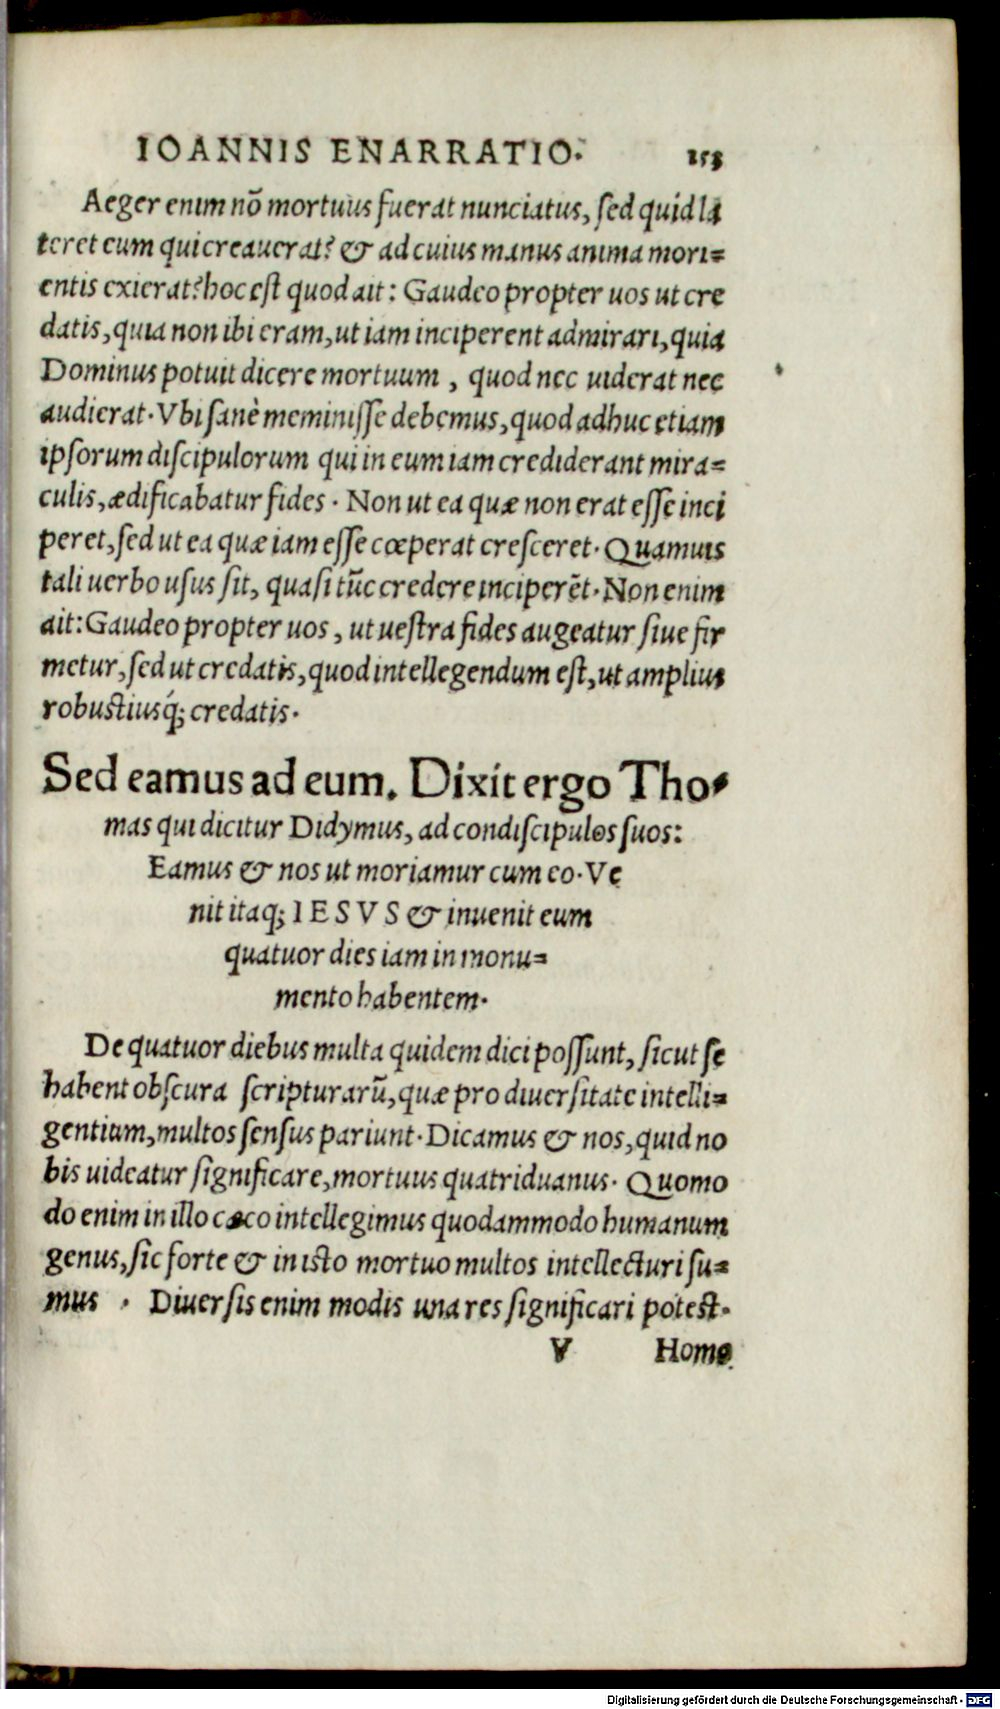 IOANNIS ENARRATIO. 153
Aeger enim nō mortuus fuerat nunciatus, sed quid la
teret eum qui creauerat? & ad cuius manus anima mori=
entis exierat? hoc est quod ait: Gaudeo propter uos ut cre
datis, quia non ibi eram, ut iam inciperent admirari, quia
Dominus potuit dicere mortuum, quod nec uiderat nec
audierat. Vbi sanè meminisse debemus, quod adhuc etiam
ipsorum discipulorum qui in eum iam crediderant mira=
culis, ædificabatur fides. Non ut ea quæ non erat esse inci
peret, sed ut ea quæ iam esse cœperat cresceret. Quamuis
tali uerbo usus sit, quasi tūc credere inciperēt. Non enim
ait: Gaudeo propter uos, ut uestra fides augeatur siue fir
metur, sed ut credatis, quod intellegendum est, ut amplius
robustiusq́; credatis.
Sed eamus ad eum. Dixit ergo Tho=
mas qui dicitur Didymus, ad condiscipulos suos:
Eamus & nos ut moriamur cum eo. Ve
nit itaq; IESVS & inuenit eum
quatuor dies iam in monu=
mento habentem.
De quatuor diebus multa quidem dici possunt, sicut se
habent obscura scripturarū, quæ pro diuersitate intelli=
gentium, multos sensus pariunt. Dicamus & nos, quid no
bis uideatur significare, mortuus quatriduanus. Quomo
do enim in illo cæco intellegimus quodammodo humanum
genus, sic forte & in isto mortuo multos intellecturi su=
mus. Diuersis enim modis una res significari potest.
V Homo
Digitalisierung gefördert durch die Deutsche Forschungsgemeinschaft - DFG